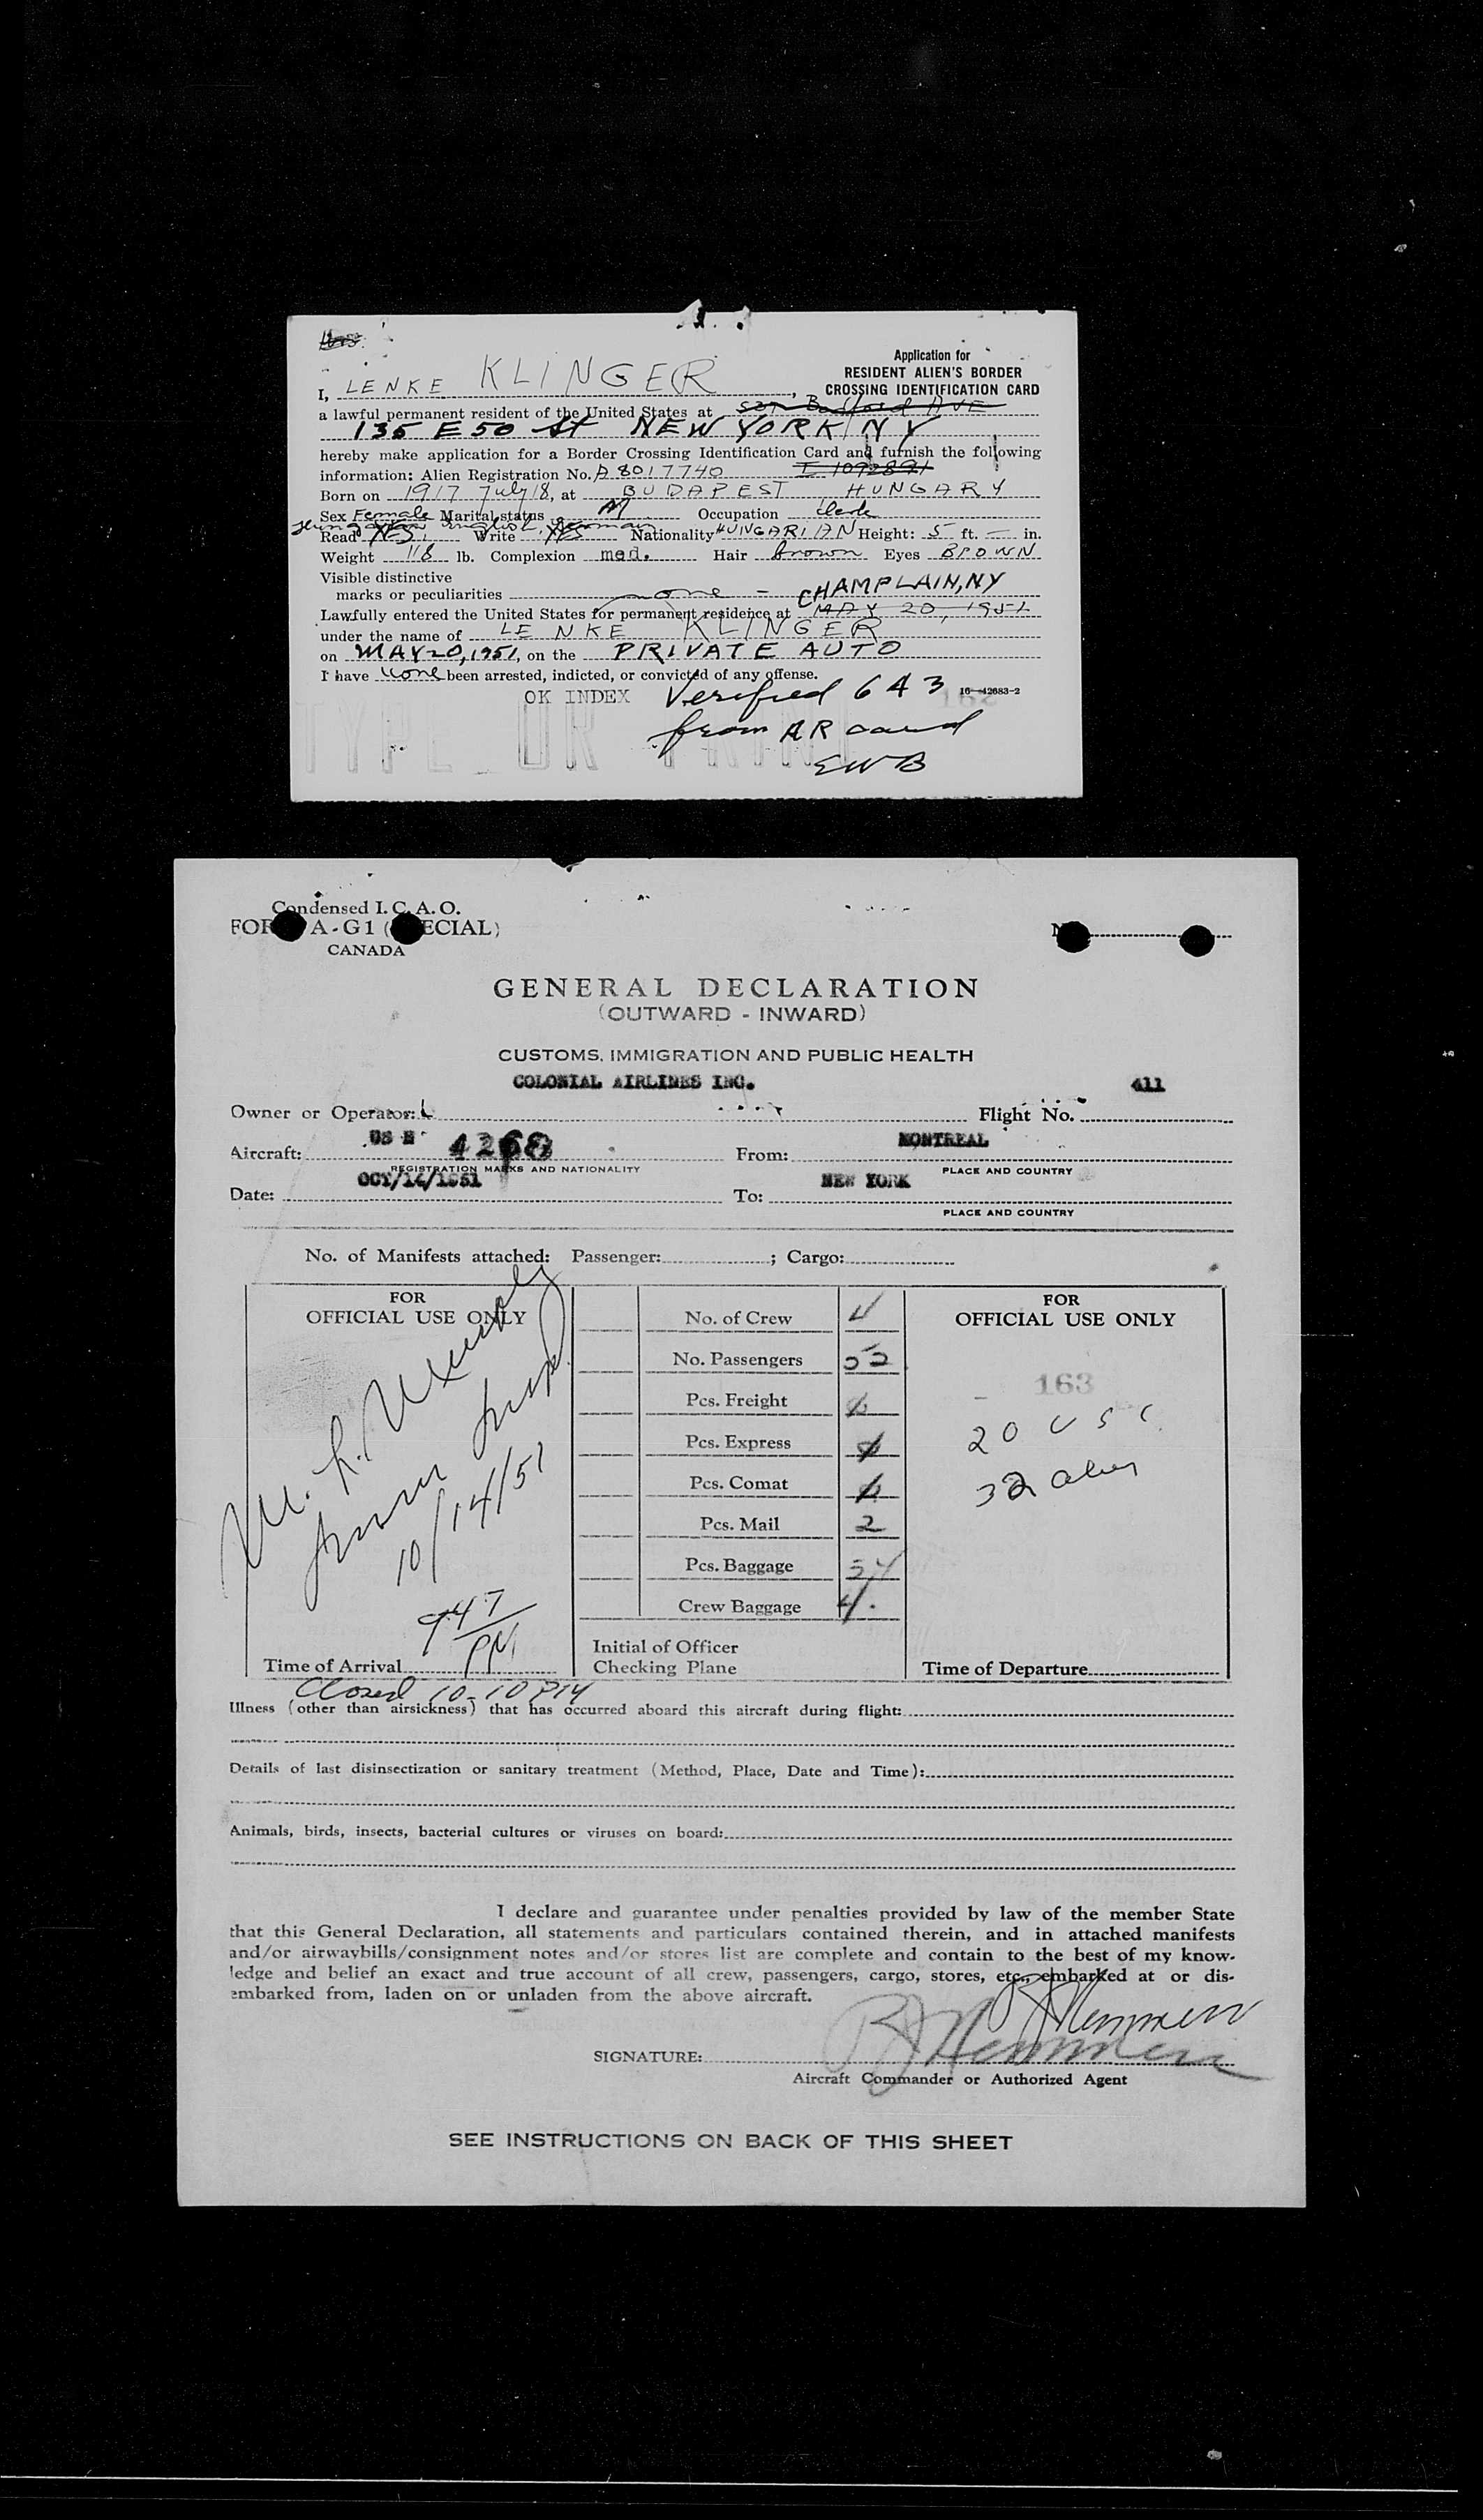 Application for
RESIDENT ALIEN'S BORDER
CROSSING IDENTIFICATION CARD
I, LENKE KLINGER,
a lawful permanent resident of the United States at AVE
135 E 50 St NEW YORK NY
hereby make application for a Border Crossing Identification Card and furnish the following
information: Alien Registration No. A 8017740 I 1092891
Born on 1917 July 18, at BUDAPEST HUNGARY
Sex Female Marital status M Occupation Clerk
Hungarian English, German
Read YES, Write YES Nationality HUNGARIAN Height: 5 ft. — in.
Weight 118 lb. Complexion med. Hair brown Eyes BROWN
Visible distinctive
marks or peculiarities none - CHAMPLAIN, NY
Lawfully entered the United States for permanent residence at MAY 20, 1951
under the name of LENKE KLINGER
on MAY 20, 1951, on the PRIVATE AUTO
I have none been arrested, indicted, or convicted of any offense.
OK INDEX Verified 643 16—42683-2
162
from AR card
EWB
TYPE OR PRINT
Condensed I. C. A. O.
FORM A - G1 (SPECIAL)
CANADA
GENERAL DECLARATION
(OUTWARD - INWARD)
CUSTOMS, IMMIGRATION AND PUBLIC HEALTH
COLONIAL AIRLINES INC. 411
Owner or Operator: Flight No.
US N 4268 MONTREAL
Aircraft: From:
REGISTRATION MARKS AND NATIONALITY PLACE AND COUNTRY
OCT/14/1951 NEW YORK
Date: To:
PLACE AND COUNTRY
No. of Manifests attached: Passenger: ; Cargo:
FOR
OFFICIAL USE ONLY
10/14/51
947
PM
Time of Arrival
No. of Crew 4
No. Passengers 52
Pcs. Freight
Pcs. Express
Pcs. Comat
Pcs. Mail 2
Pcs. Baggage 54
Crew Baggage 4.
Initial of Officer
Checking Plane
FOR
OFFICIAL USE ONLY
163
20 USC
32 alien
Time of Departure
Closed 10-10 PM
Illness (other than airsickness) that has occurred aboard this aircraft during flight:
Details of last disinsectization or sanitary treatment (Method, Place, Date and Time):
Animals, birds, insects, bacterial cultures or viruses on board:
I declare and guarantee under penalties provided by law of the member State
that this General Declaration, all statements and particulars contained therein, and in attached manifests
and/or airwaybills/consignment notes and/or stores list are complete and contain to the best of my know-
ledge and belief an exact and true account of all crew, passengers, cargo, stores, etc., embarked at or dis-
embarked from, laden on or unladen from the above aircraft.
SIGNATURE:
Aircraft Commander or Authorized Agent
SEE INSTRUCTIONS ON BACK OF THIS SHEET